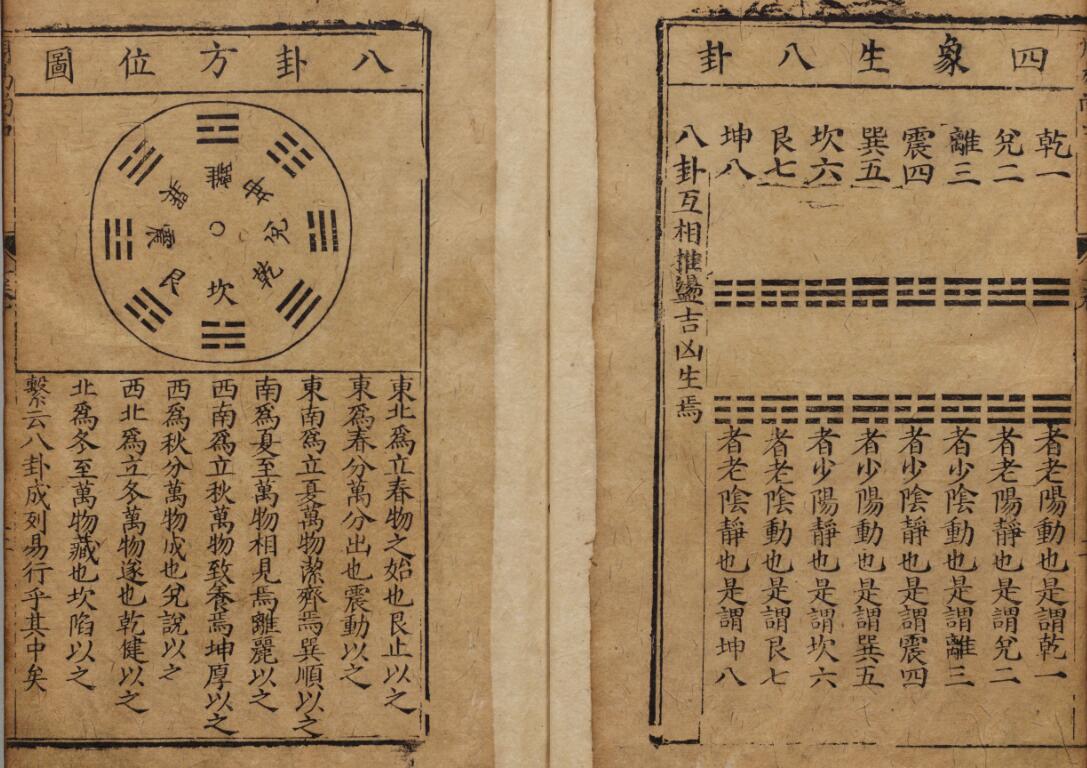 四象生八卦
乾一
兌二
離三
震四
巽五
坎六
艮七
坤八
者老陽動也是謂乾一
者老陽靜也是謂兌二
者少陰動也是謂離三
者少陰靜也是謂震四
者少陽動也是謂巽五
者少陽靜也是謂坎六
者老陰動也是謂艮七
者老陰靜也是謂坤八
八卦互相推盪吉凶生焉
八卦方位圖
離
坤
兌
乾
坎
艮
震
巽
東北爲立春物之始也艮止以之
東爲春分萬分出也震動以之
東南爲立夏萬物潔齊焉巽順以之
南爲夏至萬物相見焉離麗以之
西南爲立秋萬物致養焉坤厚以之
西爲秋分萬物成也兌說以之
西北爲立冬萬物遂也乾健以之
北爲冬至萬物藏也坎陷以之
繫云八卦成列易行乎其中矣